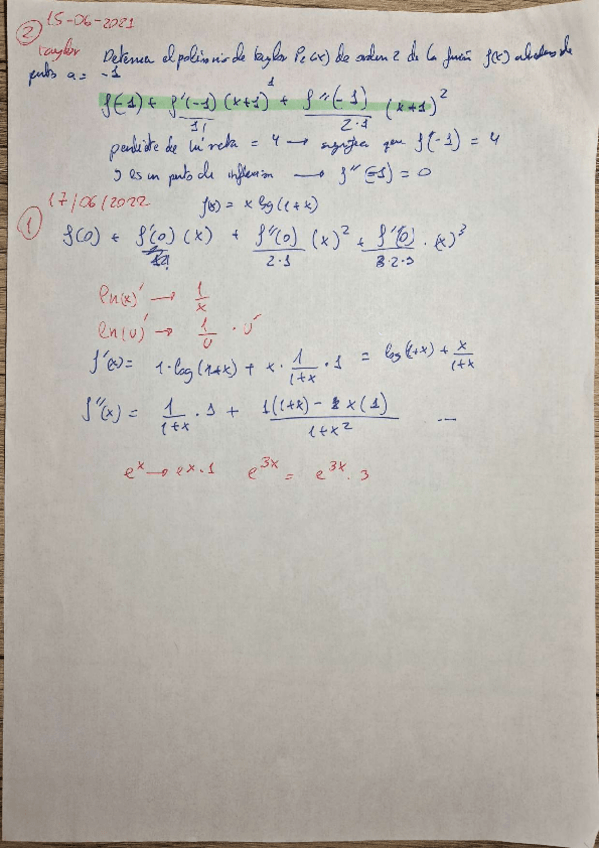 ② 15-06-2021
Taylor Determina el polinomio de taylor P₂(x) de orden 2 de la función f(x) alrededor de
punto a = -1
f(-1) + f'(-1)/1! (x+1)¹ + f''(-1)/2·1 (x+1)²
pendiente de la recta = 4 → significa que f'(-1) = 4
y es un punto de inflexion → f''(-1) = 0
17/06/2022 f(x) = x log(1+x)
① f(0) + f'(0) (x) + f''(0)/2·1 (x)² + f'''(0)/3·2·1 · (x)³
ln(x)' → 1/x
ln(u)' → 1/u · u'
f'(x) = 1·log(1+x) + x · 1/1+x · 1 = log(1+x) + x/1+x
f''(x) = 1/1+x · 1 + 1(1+x) - x(1)/1+x² ...
eˣ → eˣ·1 e³ˣ = e³ˣ · 3